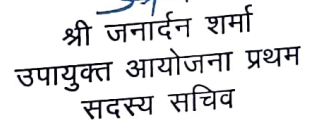 श्री जनार्दन शर्मा
उपायुक्त आयोजना प्रथम
सदस्य सचिव